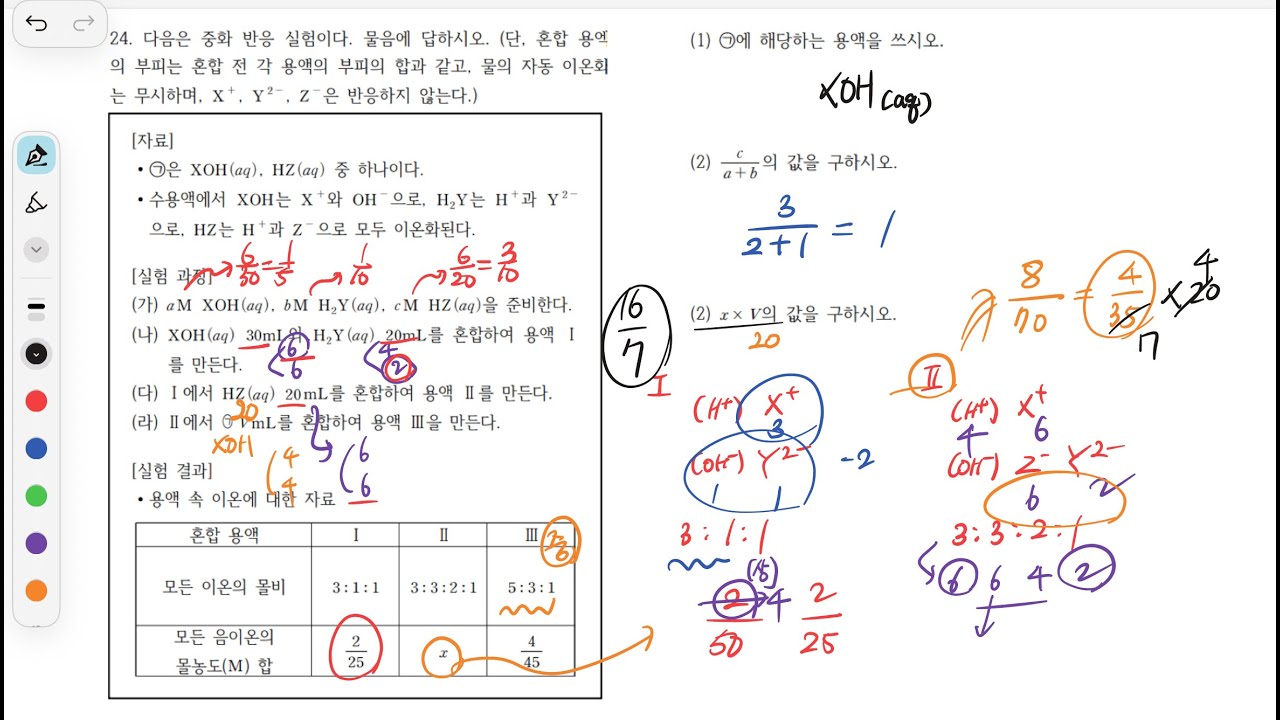 24. 다음은 중화 반응 실험이다. 물음에 답하시오. (단, 혼합 용액
의 부피는 혼합 전 각 용액의 부피의 합과 같고, 물의 자동 이온화
는 무시하며, X⁺, Y²⁻, Z⁻은 반응하지 않는다.)
[자료]
• ㉠은 XOH(aq), HZ(aq) 중 하나이다.
• 수용액에서 XOH는 X⁺와 OH⁻으로, H₂Y는 H⁺과 Y²⁻
으로, HZ는 H⁺과 Z⁻으로 모두 이온화된다.
6/30 = 1/5 1/10 6/20 = 3/10
[실험 과정]
(가) aM XOH(aq), bM H₂Y(aq), cM HZ(aq)을 준비한다.
(나) XOH(aq) 30mL와 H₂Y(aq) 20mL를 혼합하여 용액 Ⅰ
를 만든다.
6 6 4 2
(다) Ⅰ에서 HZ(aq) 20mL를 혼합하여 용액 Ⅱ를 만든다.
(라) Ⅱ에서 ㉠ VmL를 혼합하여 용액 Ⅲ을 만든다.
20
XOH
4 4
6 6
[실험 결과]
• 용액 속 이온에 대한 자료
혼합 용액 Ⅰ Ⅱ Ⅲ
모든 이온의 몰비 3:1:1 3:3:2:1 5:3:1
모든 음이온의 몰농도(M) 합 2/25 x 4/45
(1) ㉠에 해당하는 용액을 쓰시오.
XOH(aq)
(2) c/(a+b)의 값을 구하시오.
3/(2+1) = 1
(2) x×V의 값을 구하시오.
20
16/7
8/70 = 4/35 × 20
7 4
Ⅰ
(H⁺) X⁺
3
(OH⁻) Y²⁻ -2
1 1
3:1:1
2 4
50
2/25
Ⅱ
(H⁺) X⁺
4 6
(OH⁻) Z⁻ Y²⁻
6 2
3:3:2:1
6 6 4 2